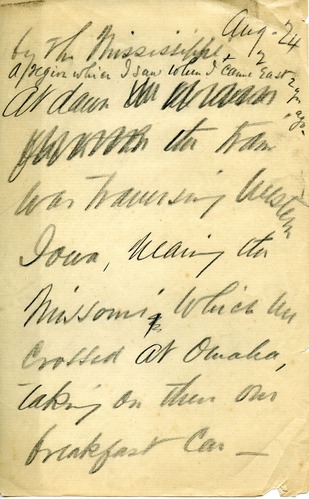 Aug. 24
by the Mississippi,
a region which I saw when I came East 2 yrs ago.
At dawn
the train
was traversing Western
Iowa, nearing the
Missouri, which we
crossed at Omaha,
taking on there our
breakfast car —